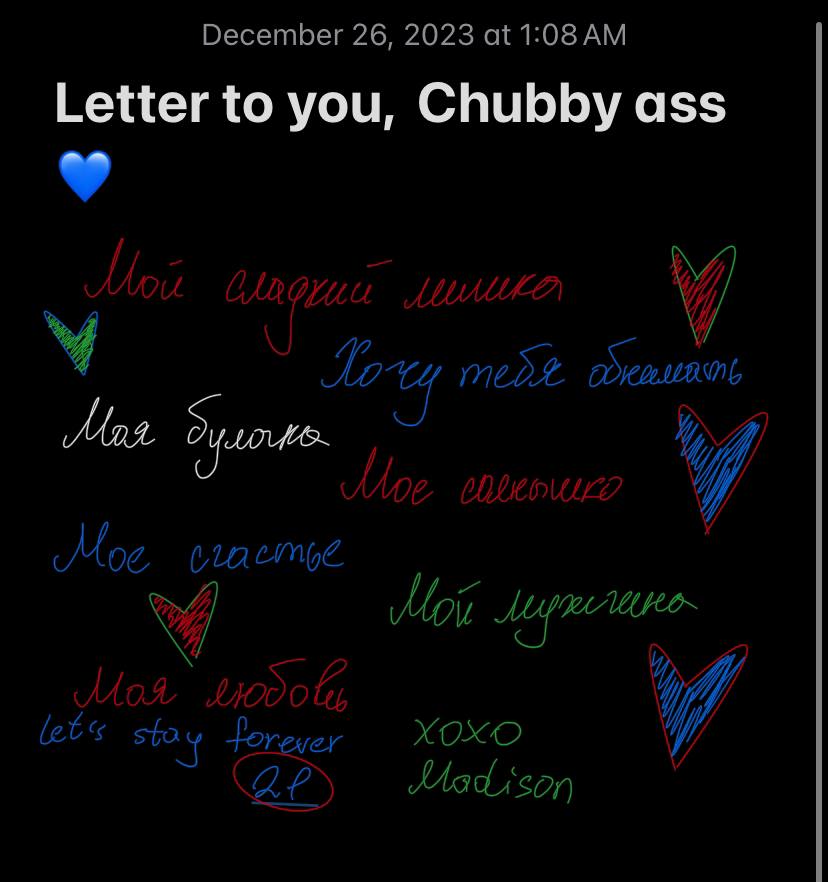 December 26, 2023 at 1:08 AM
Letter to you, Chubby ass
💙
Мой сладкий мишка
Хочу тебя обнимать
Моя булочка
Мое солнышко
Мое счастье
Мой мужчина
Моя любовь
Let's stay forever
21
xoxo
Madison